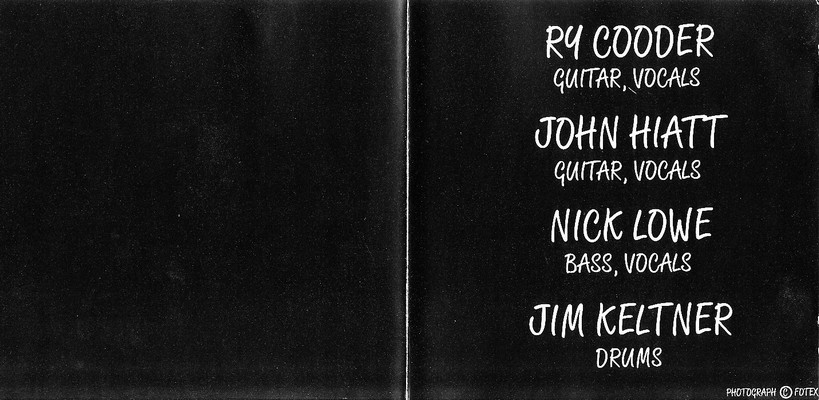 RY COODER
GUITAR, VOCALS
JOHN HIATT
GUITAR, VOCALS
NICK LOWE
BASS, VOCALS
JIM KELTNER
DRUMS
PHOTOGRAPH © FOTEX